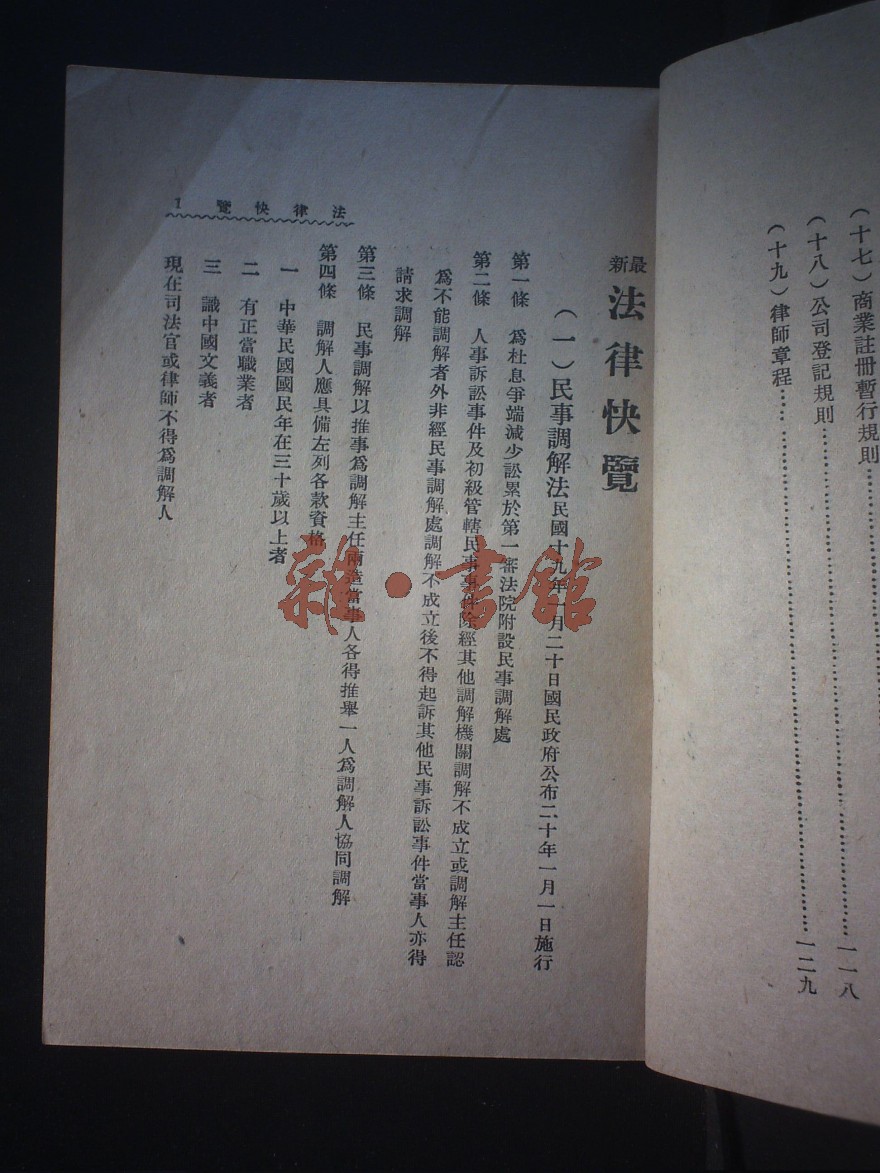 (十七)商業註冊暫行規則………一一八
(十八)公司登記規則………一二九
(十九)律師章程……
最新法律快覽
(一)民事調解法民國十九年一月二十日國民政府公布二十年一月一日施行
第一條 爲杜息爭端減少訟累於第一審法院附設民事調解處
第二條 人事訴訟事件及初級管轄民事事件除經其他調解機關調解不成立或調解主任認
爲不能調解者外非經民事調解處調解不成立後不得起訴其他民事訴訟事件當事人亦得
請求調解
第三條 民事調解以推事爲調解主任兩造當事人各得推舉一人爲調解人協同調解
第四條 調解人應具備左列各款資格
一 中華民國國民年在三十歲以上者
二 有正當職業者
三 識中國文義者
現在司法官或律師不得爲調解人
法律快覽 1
雜·書館